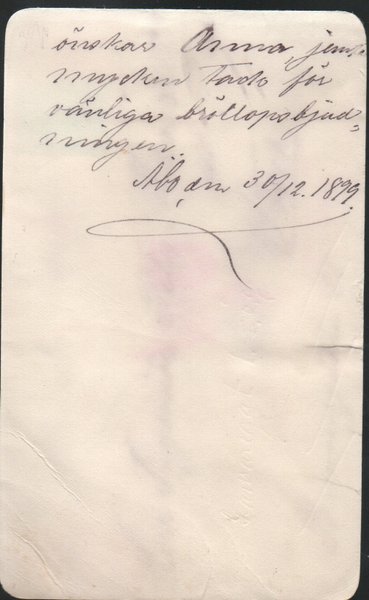 önskar Anna, jemte
mycken tack för
vänliga bröllopsbjud-
ningen.
Åbo, den 30/12. 1899.